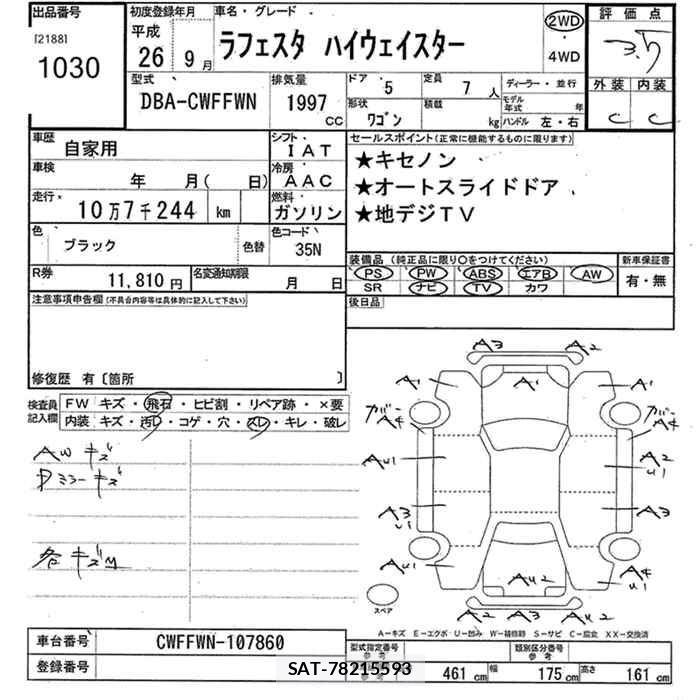 出品番号
[2188]
1030
初度登録年月
平成
26 9月
車名・グレード
ラフェスタ ハイウェイスター
2WD
・
4WD
評価点
3.5
外装 内装
C C
型式
DBA-CWFFWN
排気量
1997
CC
ドア 5
形状
ワゴン
定員 7 人
積載 kg
ディーラー・並行
モデル年式 年
ハンドル 左・右
車歴 自家用
シフト IAT
車検 年 月( 日)
冷房 AAC
走行 10万7千244 km
燃料 ガソリン
色 ブラック 色替
色コード 35N
R券 11,810 円
名変通知期限 月 日
セールスポイント(正常に機能するものに限ります)
★キセノン
★オートスライドドア
★地デジTV
装備品 (純正品に限り○をつけてください)
PS PW ABS エアB AW
SR ナビ TV カワ
新車保証書
有・無
後日品
注意事項申告欄(不具合内容等は具体的に記入して下さい)
修復歴 有〔箇所 〕
検査員記入欄
FW キズ・飛石・ヒビ割・リペア跡・×要
内装 キズ・汚レ・コゲ・穴・スレ・キレ・破レ
AW キズ
Dミラーキズ
各キズM
A3 A2
A1 A1
ガバー A4 ガバー A4
AU1 A2 U1
A3 U1 A3
AU1 A4 U1
AU2
A2 A3 AU2
スペア
A-キズ E-エクボ・U-凹み W-補修跡 S-サビ C-腐食 XX-交換済
車台番号 CWFFWN-107860
登録番号
型式指定番号
参考
類別区分番号
参考
SAT-78215593
461 cm 幅 175 cm 高さ 161 cm